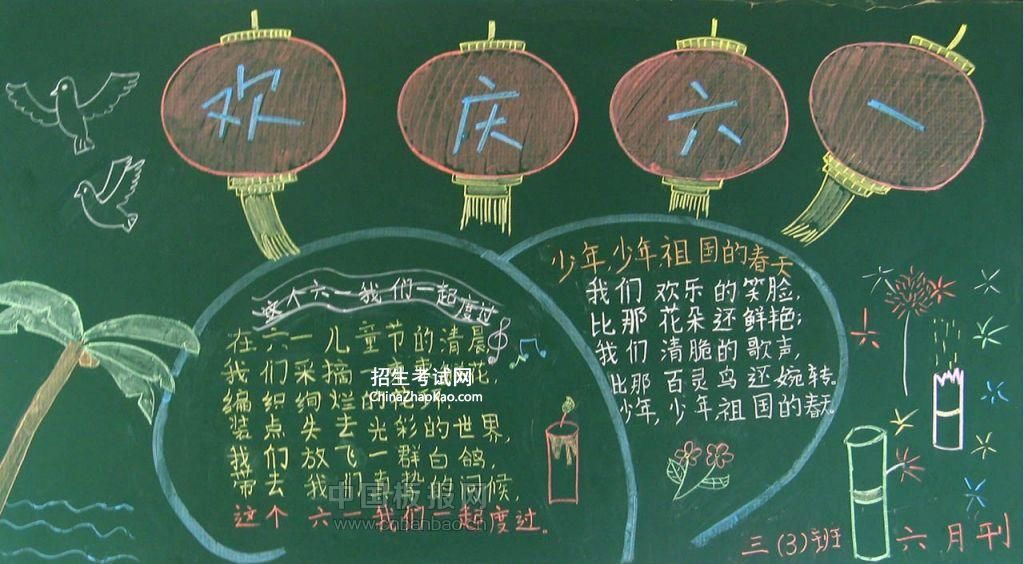 欢庆六一
这个六一我们一起度过
在六一儿童节的清晨,
我们采摘一 花,
编织绚烂的花环,
装点失去光彩的世界,
我们放飞一群白鸽,
带去我们真挚的问候,
这个六一我们一起度过。
少年,少年,祖国的春天
我们欢乐的笑脸,
比那花朵还鲜艳;
我们清脆的歌声,
比那百灵鸟还婉转。
少年,少年,祖国的春天。
三(3)班 六月刊
招生考试网
ChinaZhaokao.com
中国板报网
www.cnbanbao.cn